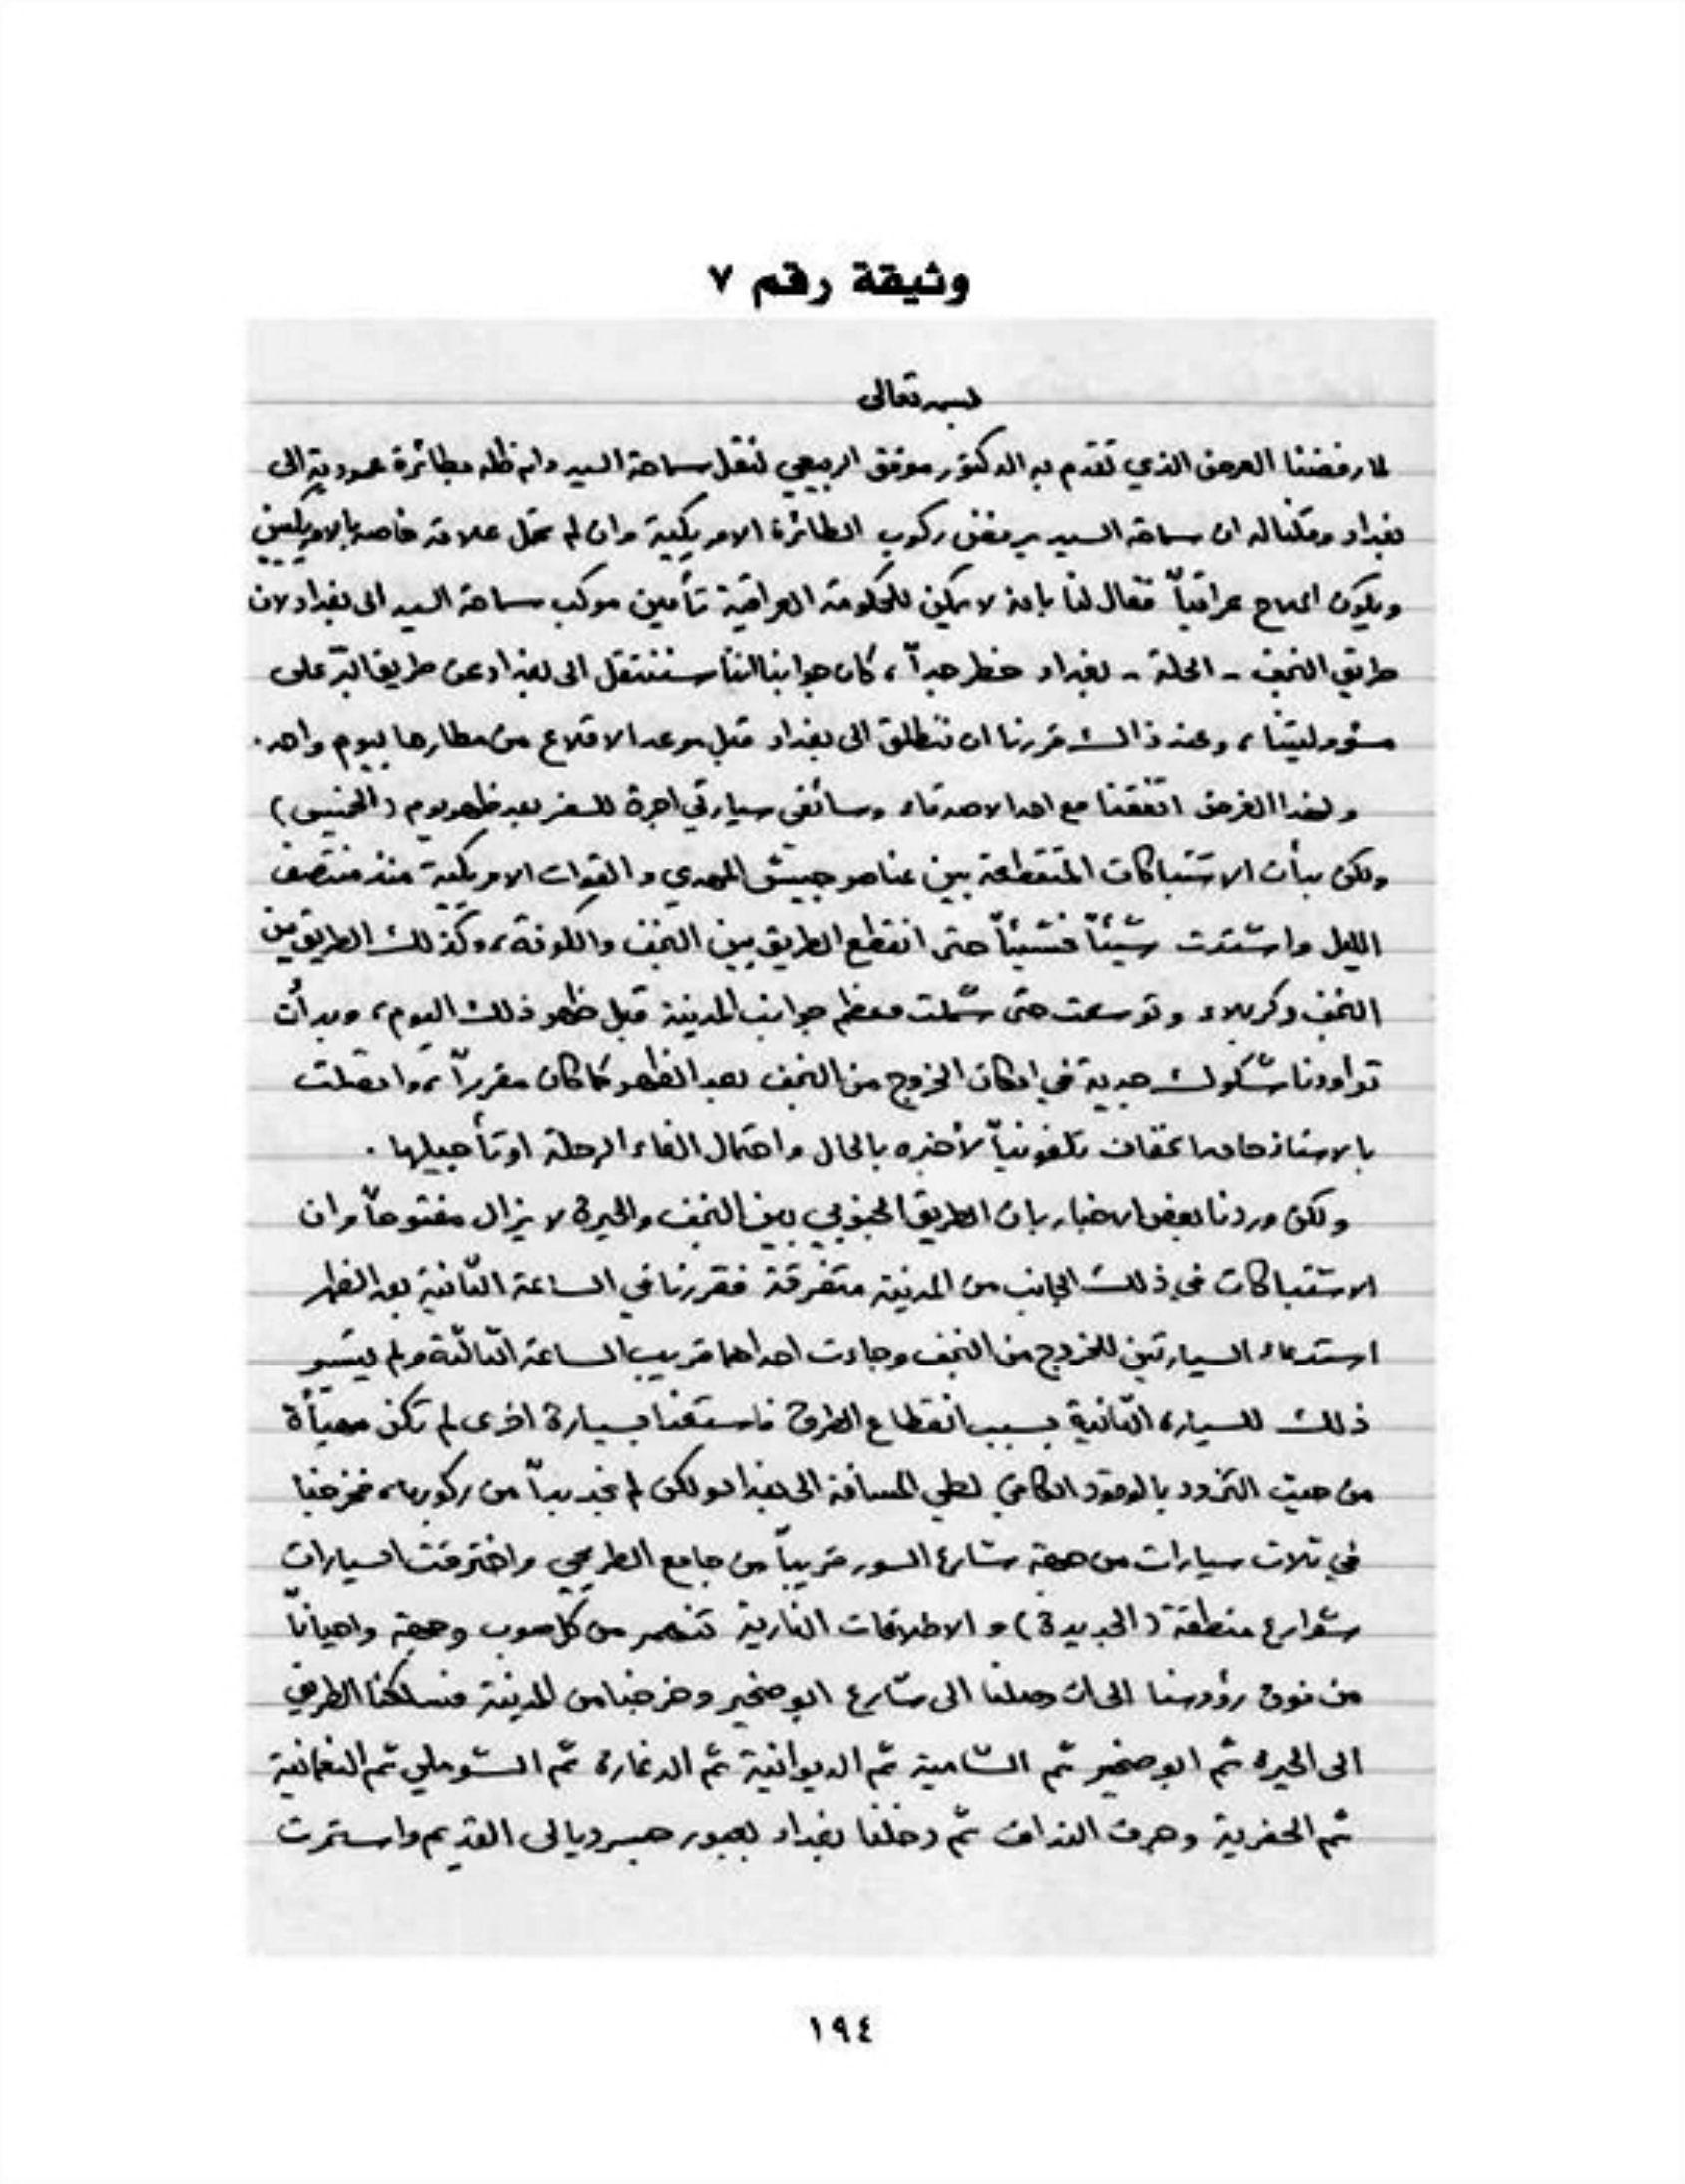 وثيقة رقم ٧
بسمه تعالى
لما رفضنا العرض الذي تقدم به الدكتور موفق الربيعي لنقل سماحة السيد دام ظله بطائرة عمودية الى
بغداد وقلنا له ان سماحة السيد يرفض ركوب الطائرة الامريكية وان لم تحمل علامة خاصة بالامريكيين
ويكون الملاح عراقياً فقال لنا بانه لا يمكن للحكومة العراقية تأمين موكب سماحة السيد الى بغداد لان
طريق النجف - الحلة - بغداد خطر جداً، كان جوابنا اننا سننتقل الى بغداد عن طريق البرّ على
مسؤوليتنا، وعند ذالك قررنا ان ننطلق الى بغداد قبل موعد الاقلاع من مطارها بيوم واحد.
ولهذا الغرض اتفقنا مع احد الاصدقاء وسائقي سيارتي اجرة للسفر بعد ظهر يوم (الخميس)
ولكن بدأت الاشتباكات المتقطعة بين عناصر جيش المهدي والقوات الامريكية منذ منتصف
الليل واشتدت شيئاً فشيئاً حتى انقطع الطريق بين النجف والكوفة، وكذلك الطريق بين
النجف وكربلاء وتوسعت حتى شملت معظم جوانب المدينة قبل ظهر ذلك اليوم، وبدأت
تراودنا شكوك جدية في امكان الخروج من النجف بعد الظهر كما كان مقرراً، واتصلت
بالاستاذ حامد الخفاف تلفونياً لأخبره بالحال واحتمال الغاء الرحلة او تأجيلها.
ولكن وردنا بعض الاخبار بان الطريق الجنوبي بين النجف والحيرة لا يزال مفتوحاً وان
الاشتباكات في ذلك الجانب من المدينة متفرقة فقررنا في الساعة الثانية بعد الظهر
استدعاء السيارتين للخروج من النجف وجاءت احداهما قريب الساعة الثالثة ولم يتيسر
ذلك للسيارة الثانية بسبب انقطاع الطرق فاستعنا بسيارة اخرى لم تكن مهيأة
من حيث التزود بالوقود الكافي لطي المسافة الى بغداد ولكن لم نجد بداً من ركوبها، فخرجنا
في ثلاث سيارات من جهة شارع السور قريباً من جامع الطريحي واخترقت السيارات
شوارع منطقة (الجديدة) و الاطلاقات النارية تنهمر من كل صوب وجهة واحياناً
من فوق رؤوسنا الى ان وصلنا الى شارع ابو صخير وخرجنا من المدينة فسلكنا الطريق
الى الحيرة ثم ابو صخير ثم الشامية ثم الديوانية ثم الدغارة ثم الشوملي ثم النعمانية
ثم الحفرية وجرف النداف ثم دخلنا بغداد بعبور جسر ديالى القديم واستمرت
١٩٤